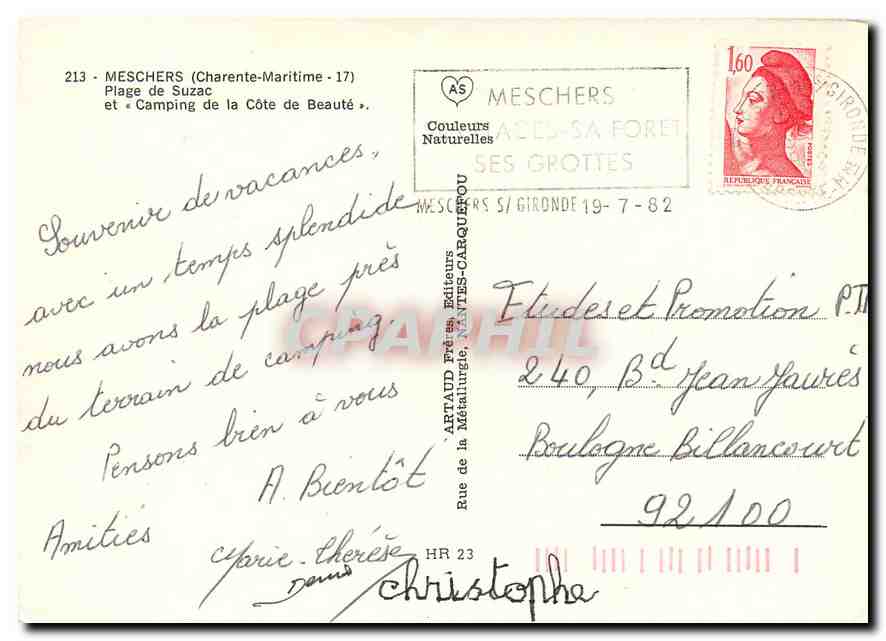 213 - MESCHERS (Charente-Maritime - 17)
Plage de Suzac
et « Camping de la Côte de Beauté ».
Souvenir de vacances,
avec un temps splendide
nous avons la plage près
du terrain de camping.
Pensons bien à vous
A. Bientôt
Amitiés
Marie-Thérèse
christophe
AS
Couleurs
Naturelles
MESCHERS
SA FORET
SES GROTTES
MESCHERS S/ GIRONDE 19-7-82
1,60
POSTES
REPUBLIQUE FRANÇAISE
S/GIRONDE
ARTAUD Frères, Editeurs
Rue de la Métallurgie, NANTES-CARQUEFOU
HR 23
Etudes et Promotion P.II
240, Bd Jean Jaurès
Boulogne Billancourt
92100
CPAPHIL